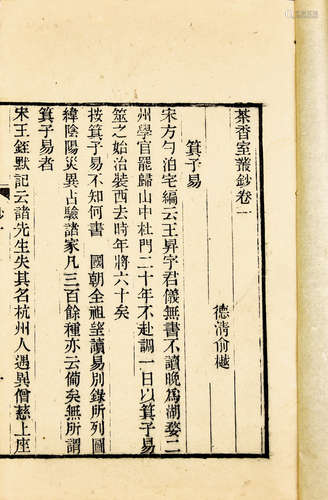 茶香室叢鈔卷一
德清俞樾
箕子易
宋方勺泊宅編云王昇字君儀無書不讀晚為湖婺二
州學官罷歸山中杜門二十年不赴調一日以箕子易
筮之始治裝西去時年將六十矣
按箕子易不知何書 國朝全祖望讀易別錄所列圖
緯陰陽災異占驗諸家凡三百餘種亦云備矣無所謂
箕子易者
宋王銍默記云諸先生失其名杭州人遇異僧慈上座